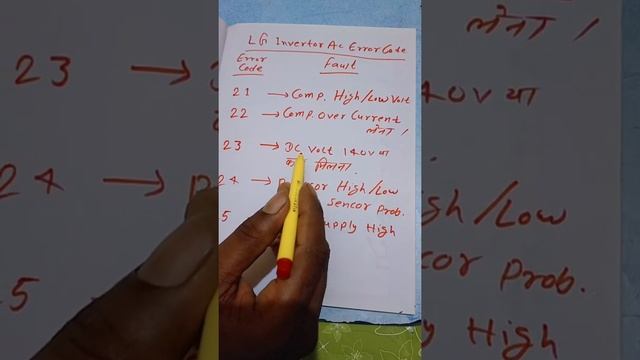 LG Invertor Ac Error Code
Error Code
Fault
21 → Comp. High/Low Volt
22 → Comp. Over Current
लेना ।
23 → DC Volt 140V या
मिलना .
24 → High/Low
Sencor Prob.
5 upply High